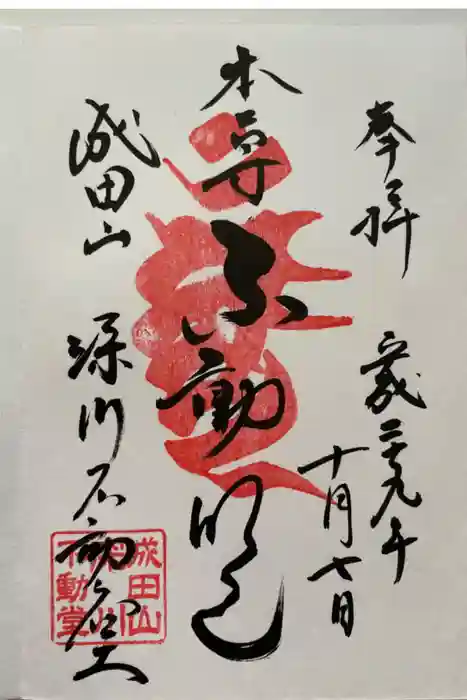 奉拝
平成二十九年
十月七日
本尊
不動明王
成田山
深川不動堂
成田山
深川
不動堂